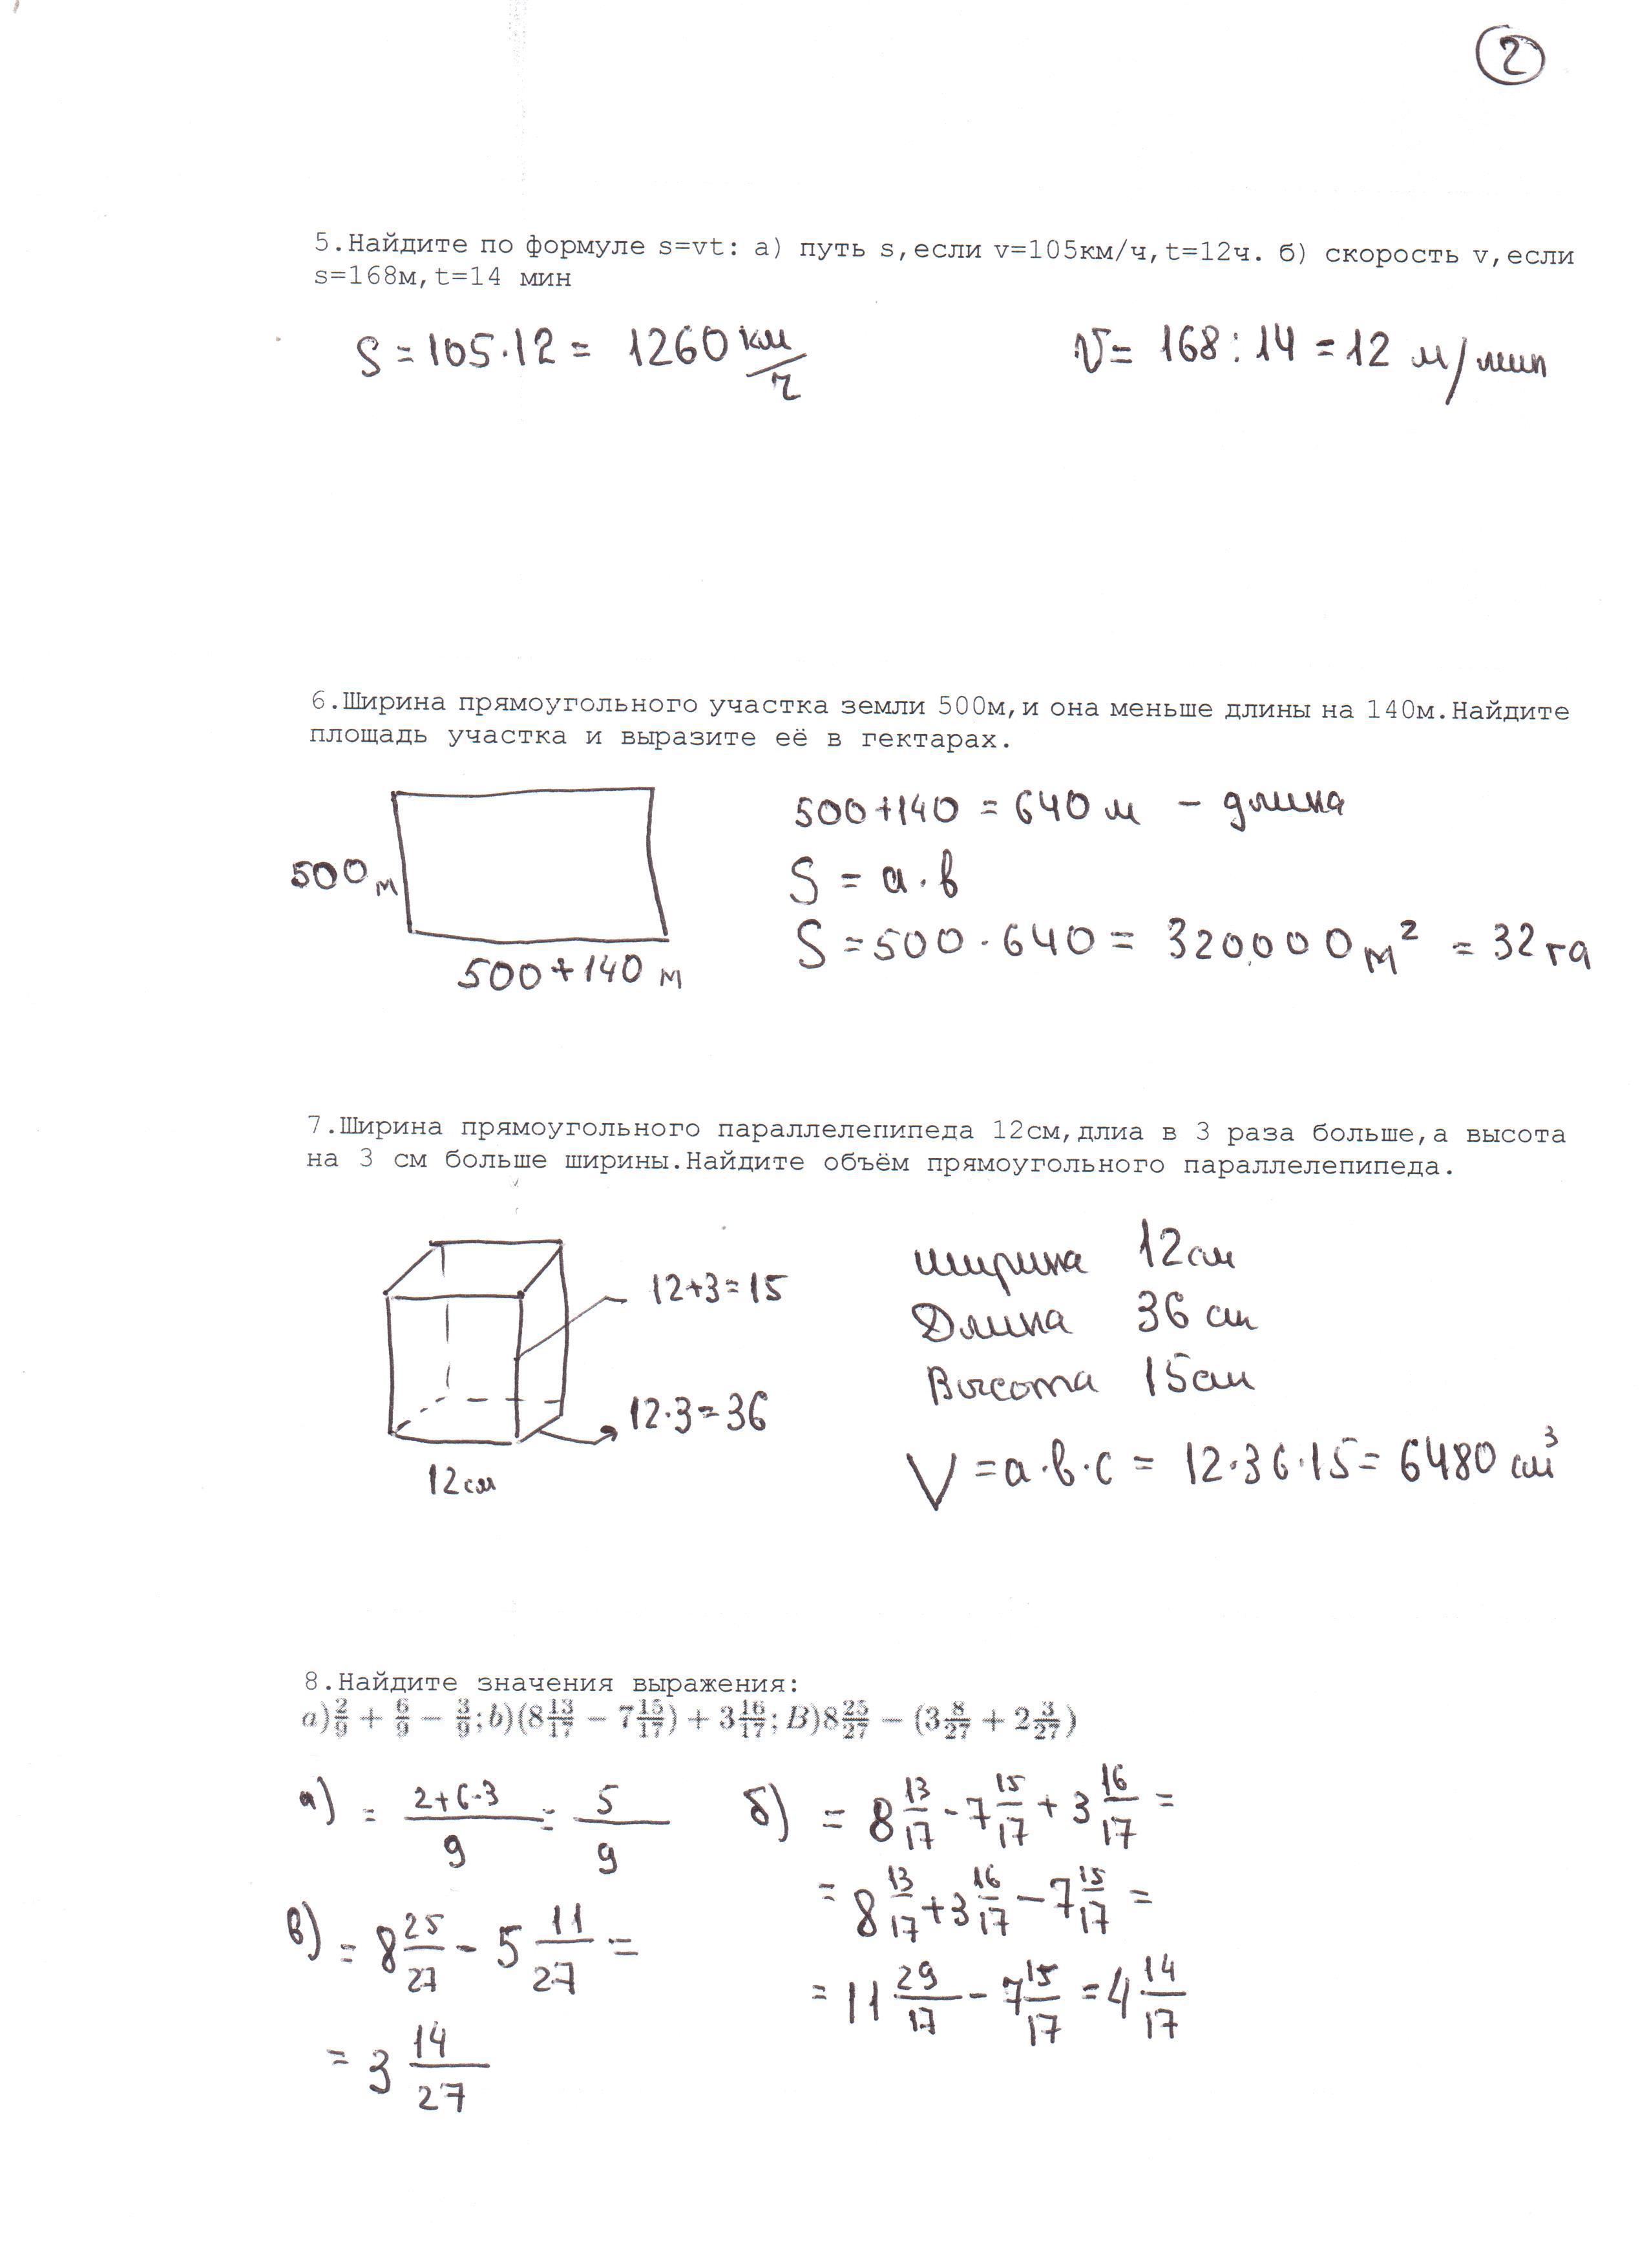 2
5.Найдите по формуле s=vt: а) путь s,если v=105км/ч,t=12ч. б) скорость v,если
s=168м,t=14 мин
S = 105·12 = 1260 км/ч
V = 168:14 = 12 м/мин
6.Ширина прямоугольного участка земли 500м,и она меньше длины на 140м.Найдите
площадь участка и выразите её в гектарах.
500+140 = 640 м - длина
500 м
S = а·в
S = 500·640 = 320000 м² = 32 га
500+140 м
7.Ширина прямоугольного параллелепипеда 12см,длиа в 3 раза больше,а высота
на 3 см больше ширины.Найдите объём прямоугольного параллелепипеда.
12+3=15
12·3=36
12см
Ширина 12см
Длина 36 см
Высота 15см
V = a·b·c = 12·36·15 = 6480 см³
8.Найдите значения выражения:
a) 2/9 + 6/9 − 3/9; b)(8 13/17 − 7 15/17) + 3 16/17; B)8 25/27 − (3 8/27 + 2 3/27)
а) = (2+6-3)/9 = 5/9
в) = 8 25/27 - 5 11/27 =
= 3 14/27
б) = 8 13/17 - 7 15/17 + 3 16/17 =
= 8 13/17 + 3 16/17 - 7 15/17 =
= 11 29/17 - 7 15/17 = 4 14/17